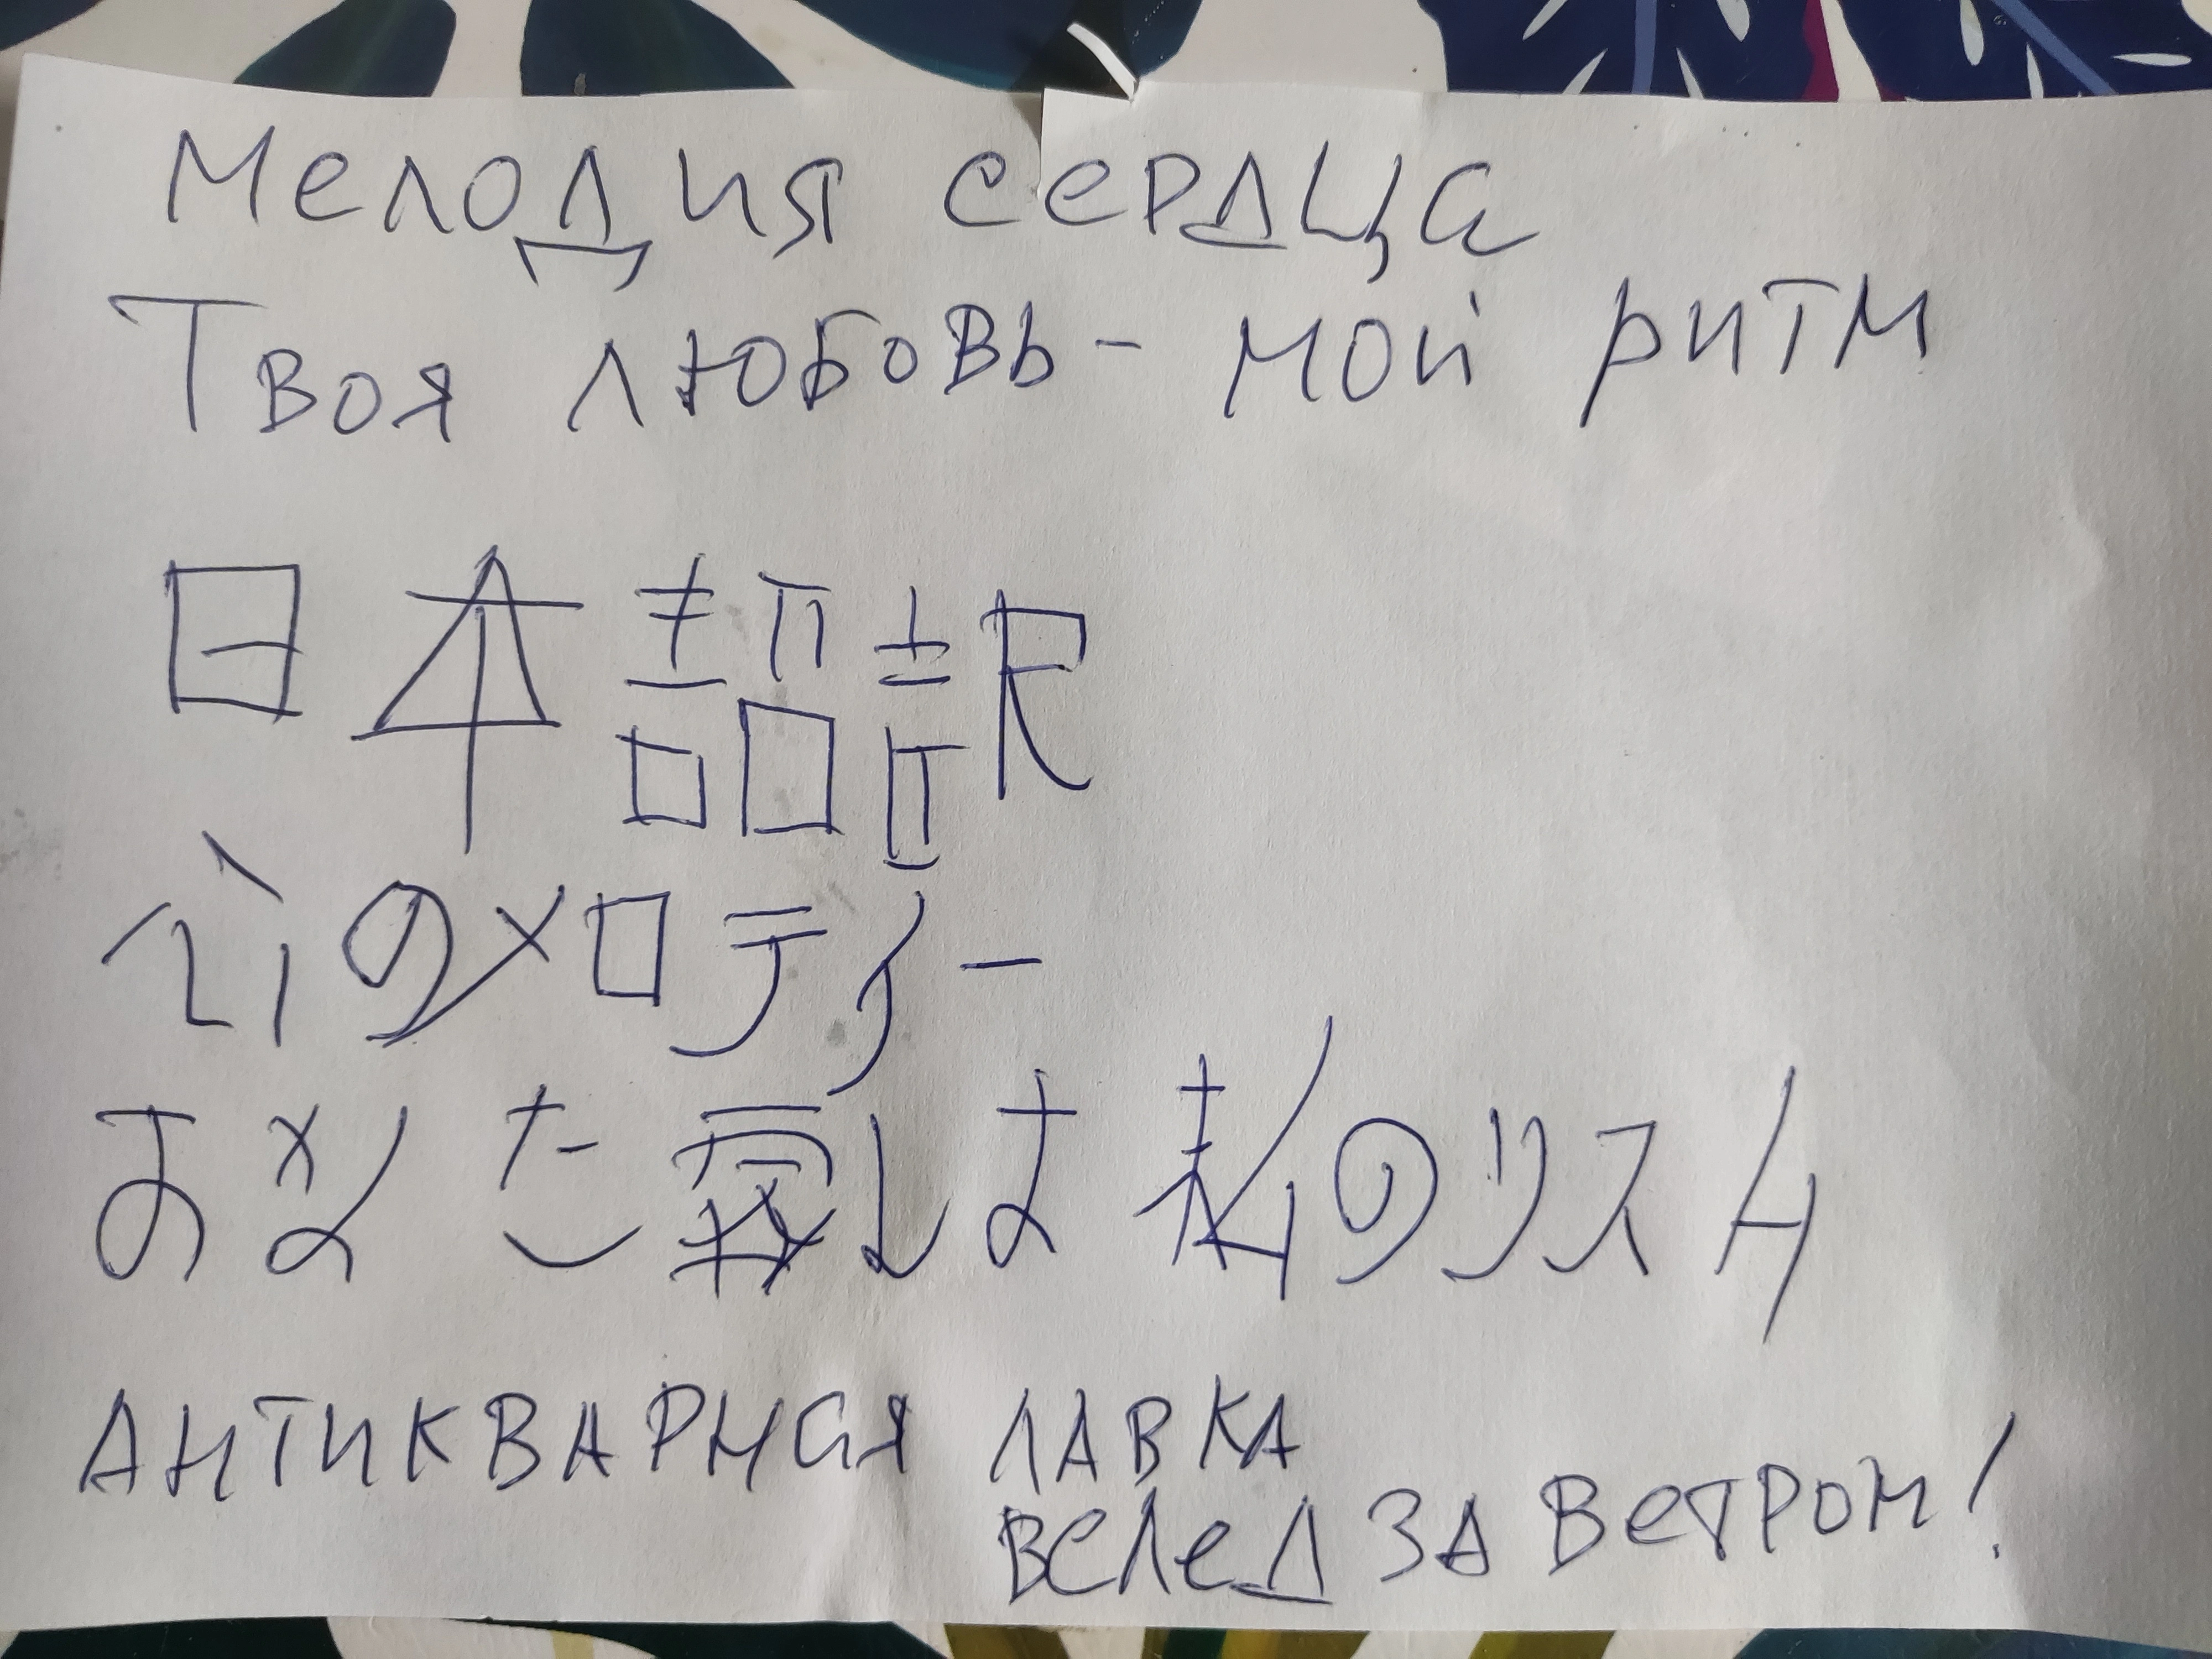 Мелодия сердца
Твоя любовь - мой ритм
日本語訳
心のメロディー
あなた愛しは私のリズム
АНТИКВАРНАЯ ЛАВКА
ВСЛЕД ЗА ВЕТРОМ!